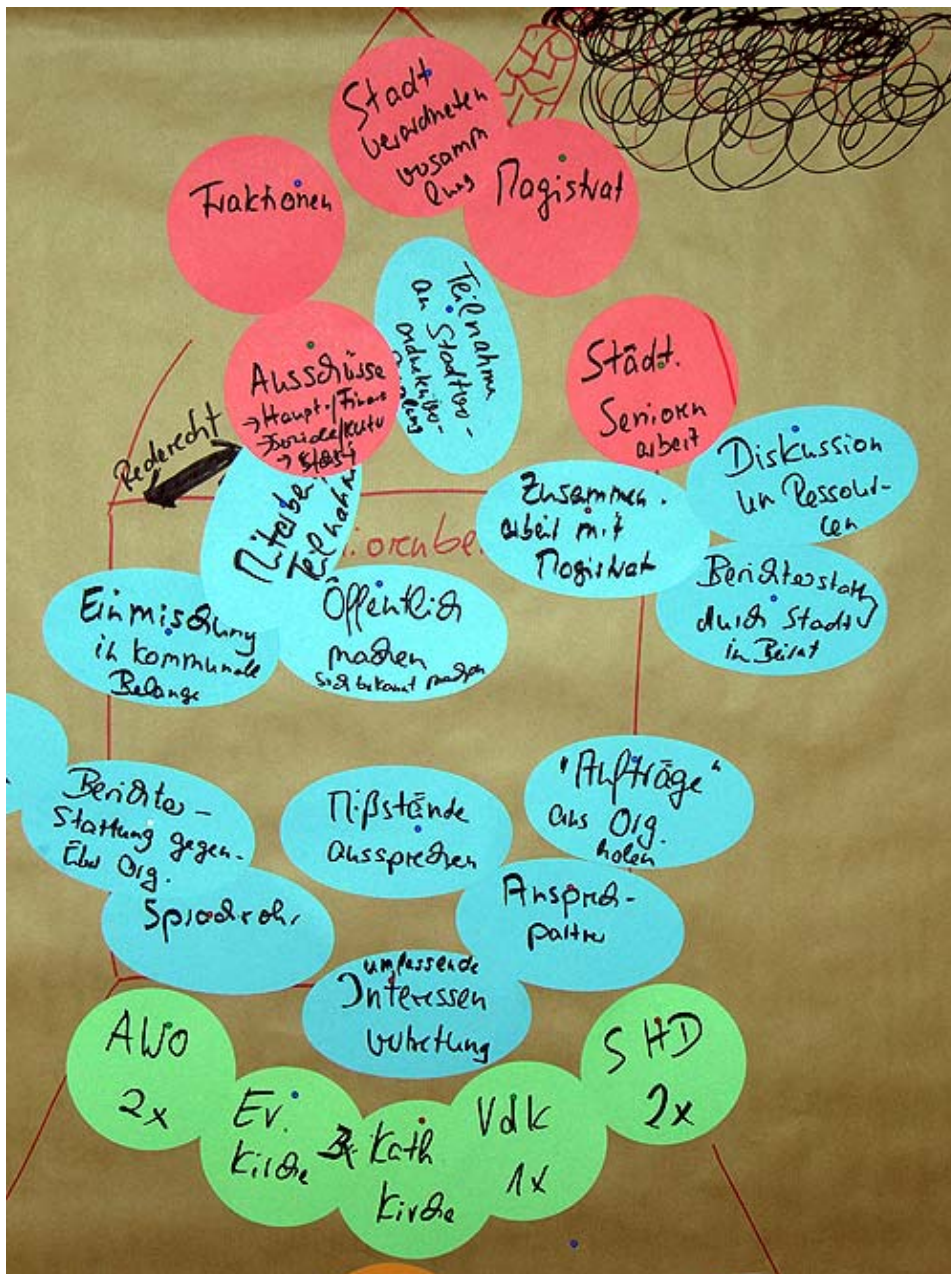 Stadt
verordneten
vosamm
lung
Fraktionen
Magistrat
Teilnahme
an Stadtver-
Ausschüsse
→ Haupt-/Finanz
→ Soziale/Kultu
Städt.
Senioren
arbeit
Rederecht
Diskussion
um Ressour-
cen
Zusammen-
arbeit mit
Magistrat
Mitarbei
Teilnahm
iorenbe
Berichterstattg
durch Stadt
in Beirat
Einmischung
in kommunale
Belange
Öffentlich
machen
sich bekannt machen
Berichter-
stattung gegen-
über Org.
Mißstände
aussprechen
"Aufträge"
aus Org.
holen
Sprachrohr
Ansprech-
partner
umfassende
Interessen
vertretung
AWO
2x
Ev.
Kirche
Kath
Kirche
VdK
1x
SHD
2x